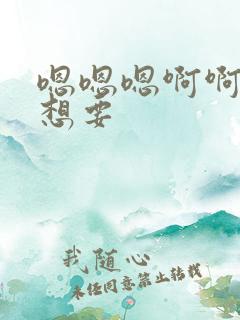 嗯嗯嗯啊啊
想要
我随心
未经同意禁止转载